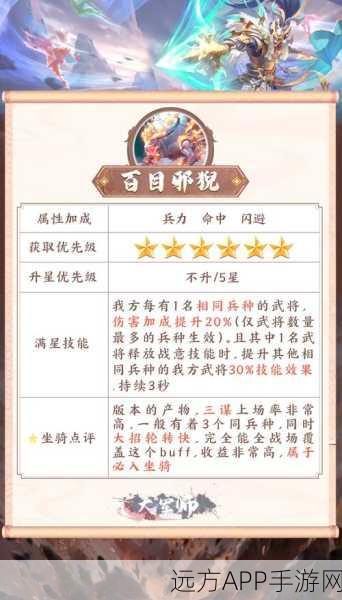 百目邪猊
属性加成 兵力 命中 闪避
获取优先级
升星优先级 不升/5星
我方每有1名相同兵种的武将,
伤害加成提升20%(仅武将数量
最多的兵种生效)。且其中1名武
满星技能 将释放战意技能时,提升其他相
同兵种的我方武将30%技能效果
,持续3秒
版本的产物,三谋上场率非常
高,一般有着3个同兵种,同时
坐骑点评 大招轮转快,完全能全战场覆
盖这个buff,收益非常高,属于
必入坐骑
大军师
远方APP手游网